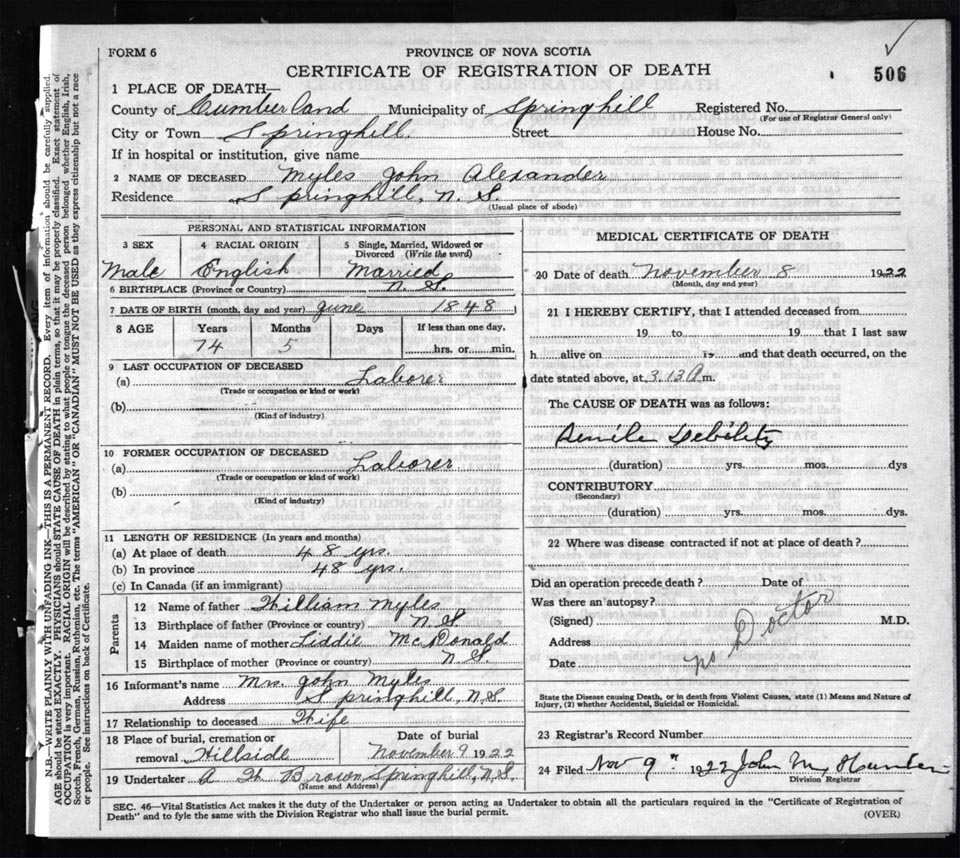 FORM 6
PROVINCE OF NOVA SCOTIA
CERTIFICATE OF REGISTRATION OF DEATH
506
1 PLACE OF DEATH—
County of Cumberland Municipality of Springhill Registered No.
(For use of Registrar General only)
City or Town Springhill. Street House No.
If in hospital or institution, give name
2 NAME OF DECEASED Myles John Alexander
Residence Springhill, N. S.
(Usual place of abode)
PERSONAL AND STATISTICAL INFORMATION
3 SEX 4 RACIAL ORIGIN 5 Single, Married, Widowed or Divorced (Write the word)
Male English Married
6 BIRTHPLACE (Province or Country) N. S.
7 DATE OF BIRTH (month, day and year) June 1848
8 AGE Years Months Days If less than one day,
74 5 hrs. or min.
9 LAST OCCUPATION OF DECEASED
(a) Laborer
(Trade or occupation or kind of work)
(b)
(Kind of industry)
10 FORMER OCCUPATION OF DECEASED
(a) Laborer
(Trade or occupation or kind of work)
(b)
(Kind of industry)
11 LENGTH OF RESIDENCE (In years and months)
(a) At place of death 48 yrs.
(b) In province 48 yrs.
(c) In Canada (if an immigrant)
Parents
12 Name of father William Myles
13 Birthplace of father (Province or country) N. S.
14 Maiden name of mother Liddie McDonald
15 Birthplace of mother (Province or country) N. S.
16 Informant's name Mrs. John Myles
Address Springhill, N.S.
17 Relationship to deceased Wife
18 Place of burial, cremation or removal Hillside
Date of burial
November 9 1922
19 Undertaker A. W. Brown, Springhill, N.S.
(Name and Address)
MEDICAL CERTIFICATE OF DEATH
20 Date of death November 8 1922
(Month, day and year)
21 I HEREBY CERTIFY, that I attended deceased from
19 to 19 that I last saw
h alive on 19 and that death occurred, on the
date stated above, at 3.13 A m.
The CAUSE OF DEATH was as follows:
Senile Debility
(duration) yrs. mos. dys
CONTRIBUTORY
(Secondary)
(duration) yrs. mos. dys.
22 Where was disease contracted if not at place of death?
Did an operation precede death? Date of
Was there an autopsy?
(Signed) M.D.
Address
Date
no Doctor
State the Disease causing Death, or in death from Violent Causes, state (1) Means and Nature of
Injury, (2) whether Accidental, Suicidal or Homicidal.
23 Registrar's Record Number
24 Filed Nov 9th 1922 John M. Hunter
Division Registrar
SEC. 46—Vital Statistics Act makes it the duty of the Undertaker or person acting as Undertaker to obtain all the particulars required in the "Certificate of Registration of
Death" and to fyle the same with the Division Registrar who shall issue the burial permit.
(OVER)
N.B.—WRITE PLAINLY WITH UNFADING INK—THIS IS A PERMANENT RECORD. Every item of information should be carefully supplied.
AGE should be stated EXACTLY. PHYSICIANS should STATE CAUSE OF DEATH in plain terms, so that it may be properly classified. Exact statement of
OCCUPATION is very important. RACIAL ORIGIN will be described by stating to what people or tongue the deceased person belonged whether English, Irish,
Scotch, French, German, Russian, Ruthenian, etc. The terms "AMERICAN" OR "CANADIAN" MUST NOT BE USED as they express citizenship but not a race
or people. See instructions on back of Certificate.